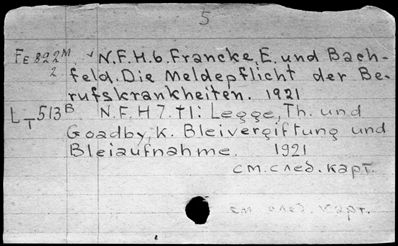 5
Fe 822 M
2
N.F.H.6. Francke, E. und Bach-
feld. Die Meldepflicht der Be-
rufskrankheiten. 1921
L 513 B
T
N.F.H 7. T1: Legge, Th. und
Goadby, K. Bleivergiftung und
Bleiaufnahme. 1921
см. след. карт.
см. след. карт.